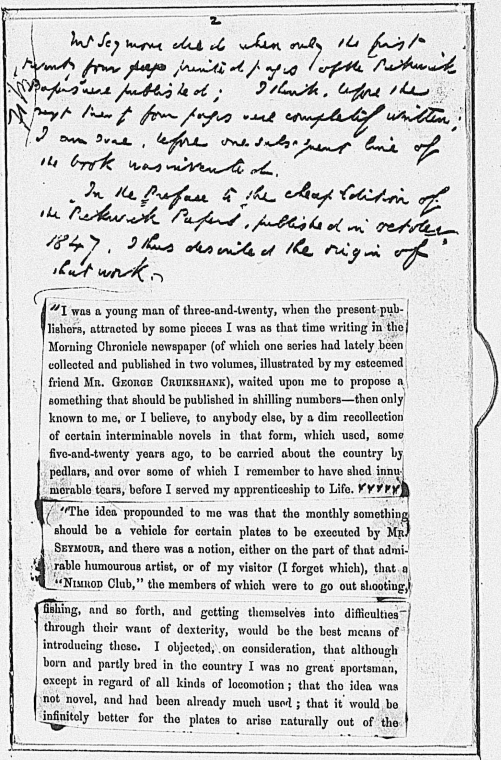 2
Mr Seymour died when only the first
twenty four printed pages of the Pickwick
Papers were published; I think, before the
next three or four pages were completely written;
I am sure, before one subsequent line of
the book was invented.
In the Preface to the cheap Edition of
the Pickwick Papers, published in October
1847, I thus described the origin of
that work.
"I was a young man of three-and-twenty, when the present pub-
lishers, attracted by some pieces I was as that time writing in the
Morning Chronicle newspaper (of which one series had lately been
collected and published in two volumes, illustrated by my esteemed
friend MR. GEORGE CRUIKSHANK), waited upon me to propose a
something that should be published in shilling numbers—then only
known to me, or I believe, to anybody else, by a dim recollection
of certain interminable novels in that form, which used, some
five-and-twenty years ago, to be carried about the country by
pedlars, and over some of which I remember to have shed innu-
merable tears, before I served my apprenticeship to Life.
"The idea propounded to me was that the monthly something
should be a vehicle for certain plates to be executed by MR.
SEYMOUR, and there was a notion, either on the part of that admi-
rable humourous artist, or of my visitor (I forget which), that a
"NIMROD Club," the members of which were to go out shooting,
fishing, and so forth, and getting themselves into difficulties
through their want of dexterity, would be the best means of
introducing these. I objected, on consideration, that although
born and partly bred in the country I was no great sportsman,
except in regard of all kinds of locomotion; that the idea was
not novel, and had been already much used; that it would be
infinitely better for the plates to arise naturally out of the